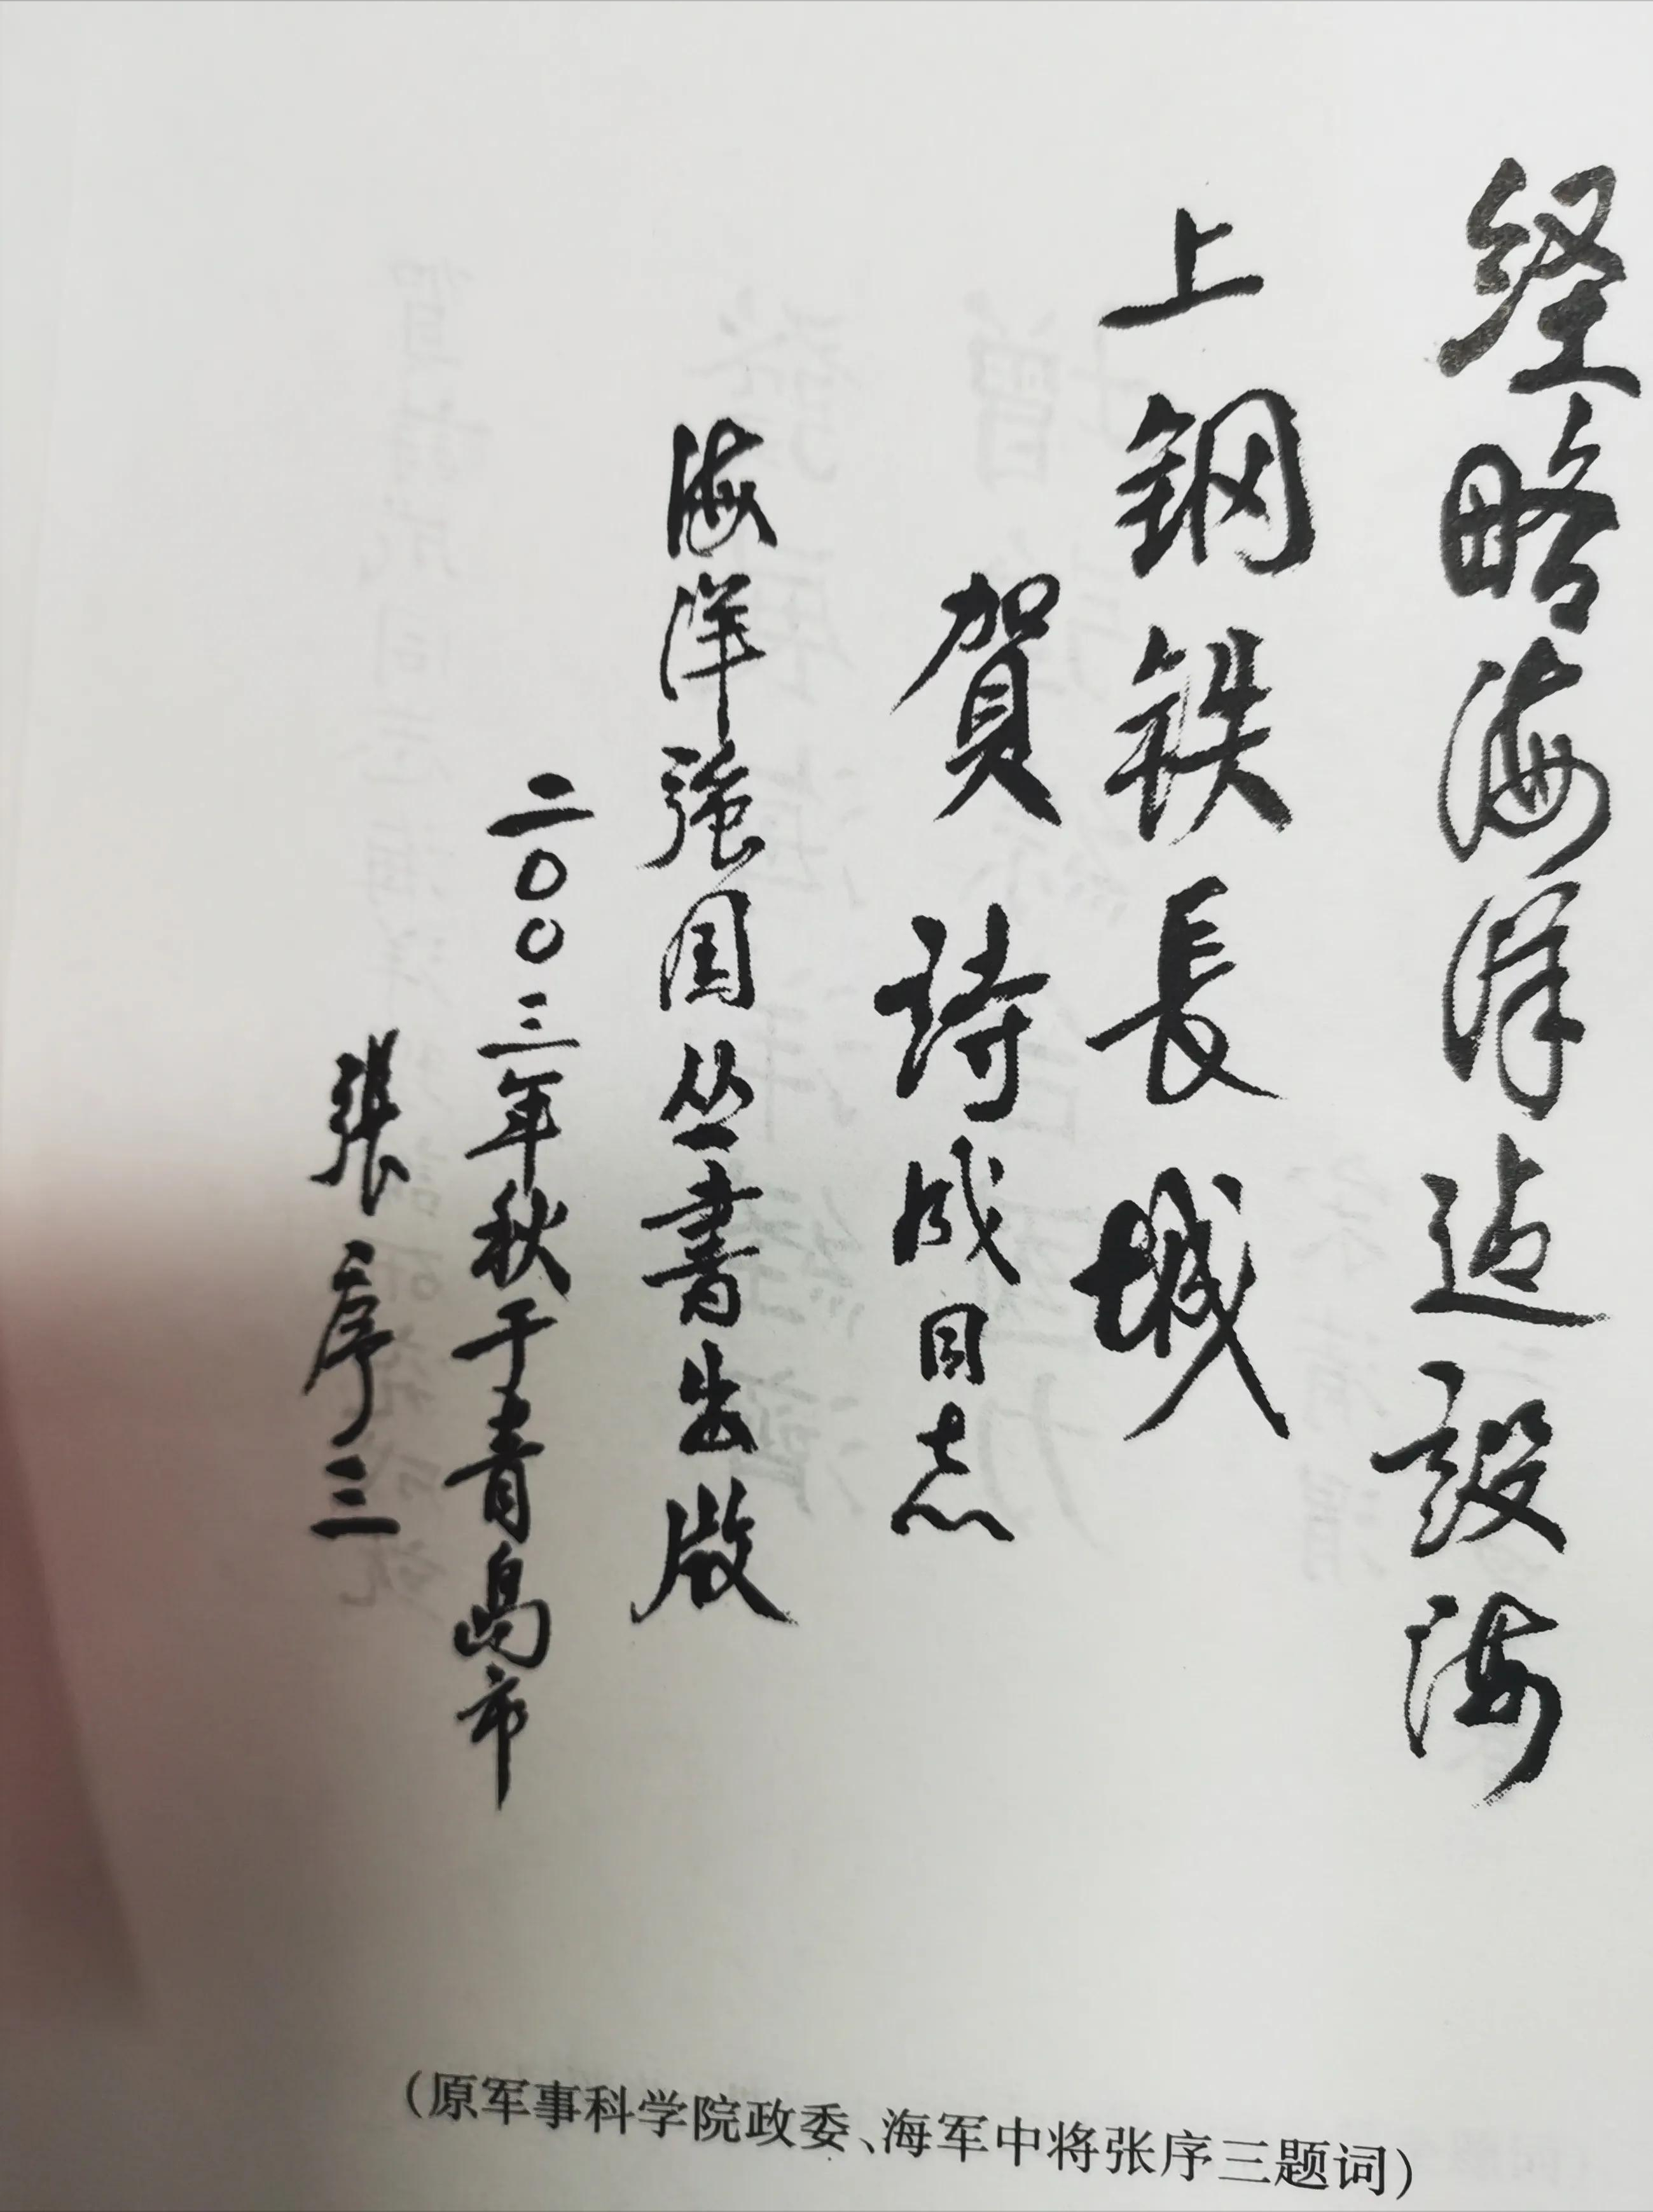 经略海洋建設海
上钢铁長城
賀 詩成同志
海洋強国丛書出版
二〇〇三年秋于青島市
張序三
（原军事科学院政委、海军中将张序三题词）